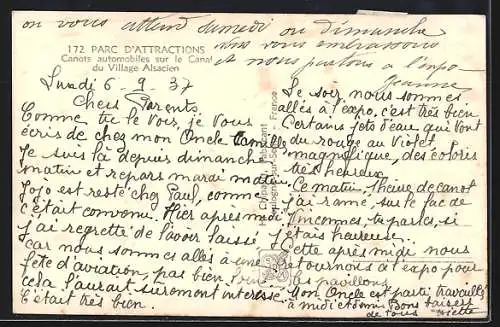 on vous attend samedi ou dimanche
nous vous embrassons
et nous partons à l'expo
Jeanne
172 PARC D'ATTRACTIONS
Canots automobiles sur le Canal
du Village Alsacien
Lundi 6-9-37
Chers Parents,
Comme tu le vois, je vous
écris de chez mon Oncle Camille
Je suis là depuis dimanche
matin et repars mardi matin.
Jojo est resté chez Paul, comme
c'était convenu. Hier après midi
j'ai regretté de l'avoir laissé
car nous sommes allés à une
fête d'aviation, pas bien
cela l'aurait sûrement intéressé
C'était très bien.
Le soir, nous sommes
allés à l'expo, c'est très bien
Certains jets d'eau, qui vont
du rouge au violet,
magnifique, des coloris
très
Ce matin, 1 heure de canot
j'ai ramé, sur le lac de
Vincennes, tu parles, si
j'étais heureuse.
Cette après midi nous
retournons à l'expo pour
les pavillons.
Mon Oncle est parti travailler
à midi et demi. Bons baisers
de tous